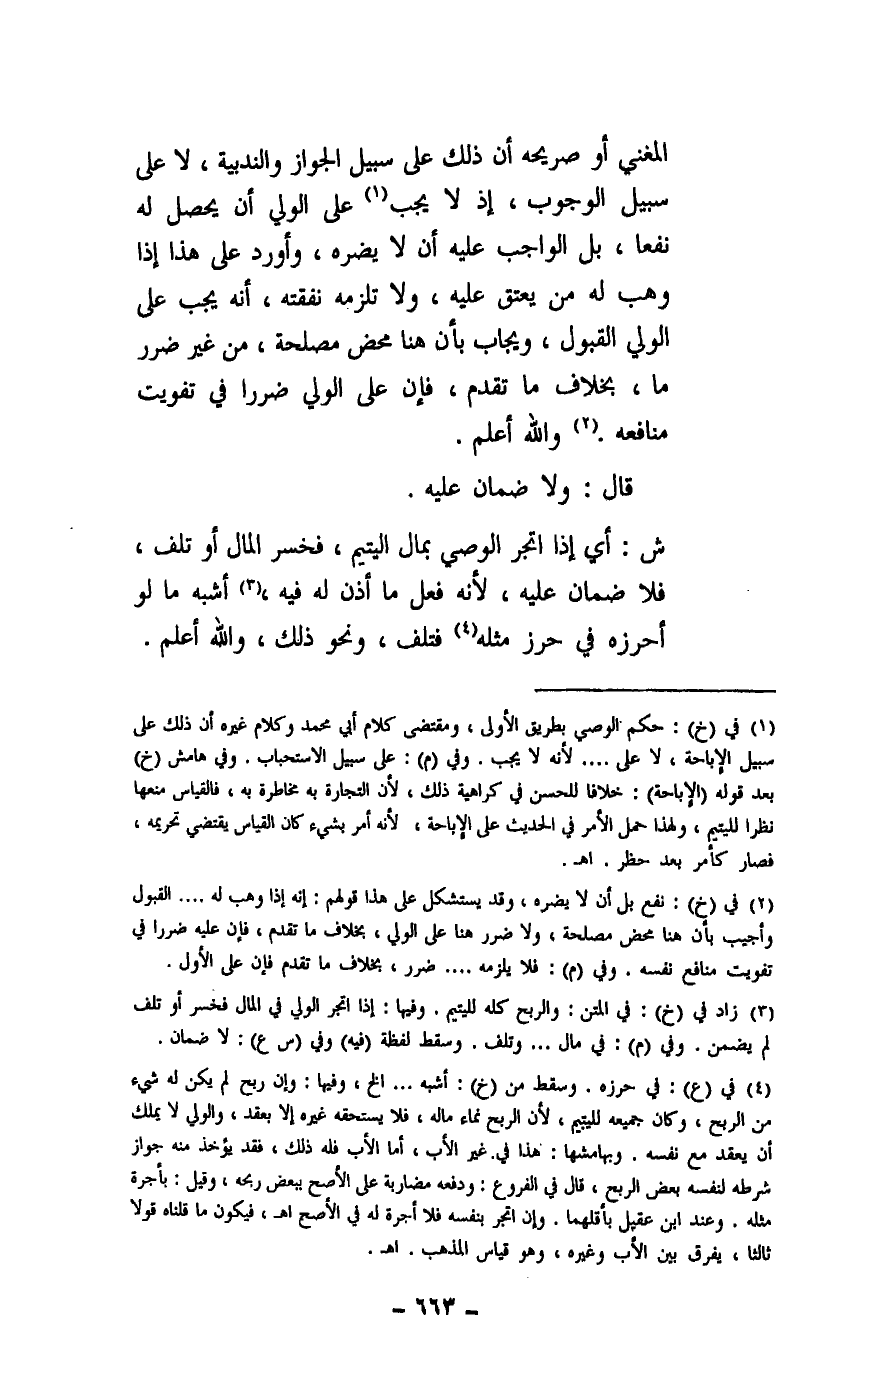 المغني أو صريحه أن ذلك على سبيل الجواز والندبية ، لا على
سبيل الوجوب ، إذ لا يجب(١) على الولي أن يحصل له
نفعا ، بل الواجب عليه أن لا يضره ، وأورد على هذا إذا
وهب له من يعتق عليه ، ولا تلزمه نفقته ، أنه يجب على
الولي القبول ، ويجاب بأن هنا محض مصلحة ، من غير ضرر
ما ، بخلاف ما تقدم ، فإن على الولي ضررا في تفويت
منافعه .(٢) والله أعلم .
قال : ولا ضمان عليه .
ش : أي إذا اتجر الوصي بمال اليتيم ، فخسر المال أو تلف ،
فلا ضمان عليه ، لأنه فعل ما أذن له فيه ،(٣) أشبه ما لو
أحرزه في حرز مثله(٤) فتلف ، ونحو ذلك ، والله أعلم .
(١) في (خ) : حكم الوصي بطريق الأولى ، ومقتضى كلام أبي محمد وكلام غيره أن ذلك على
سبيل الإباحة ، لا على .... لأنه لا يجب . وفي (م) : على سبيل الاستحباب . وفي هامش (خ)
بعد قوله (الإباحة) : خلافا للحسن في كراهية ذلك ، لأن التجارة به مخاطرة به ، فالقياس منعها
نظرا لليتيم ، ولهذا حمل الأمر في الحديث على الإباحة ، لأنه أمر بشيء كان القياس يقتضي تحريمه ،
فصار كأمر بعد حظر . اهـ .
(٢) في (خ) : نفع بل أن لا يضره ، وقد يستشكل على هذا قولهم : إنه إذا وهب له .... القبول
وأجيب بأن هنا محض مصلحة ، ولا ضرر هنا على الولي ، بخلاف ما تقدم ، فإن عليه ضررا في
تفويت منافع نفسه . وفي (م) : فلا يلزمه .... ضرر ، بخلاف ما تقدم فإن على الأول .
(٣) زاد في (خ) : في المتن : والربح كله لليتيم . وفيها : إذا اتجر الولي في المال فخسر أو تلف
لم يضمن . وفي (م) : في مال ... وتلف . وسقط لفظة (فيه) وفي (س ع) : لا ضمان .
(٤) في (ع) : في حرزه . وسقط من (خ) : أشبه ... الخ ، وفيها : وإن ربح لم يكن له شيء
من الربح ، وكان جميعه لليتيم ، لأن الربح نماء ماله ، فلا يستحقه غيره إلا بعقد ، والولي لا يملك
أن يعقد مع نفسه . وبهامشها : هذا في غير الأب ، أما الأب فله ذلك ، فقد يؤخذ منه جواز
شرطه لنفسه بعض الربح ، قال في الفروع : ودفعه مضاربة على الأصح ببعض ربحه ، وقيل : بأجرة
مثله . وعند ابن عقيل بأقلهما . وإن اتجر بنفسه فلا أجرة له في الأصح اهـ ، فيكون ما قلناه قولا
ثالثا ، يفرق بين الأب وغيره ، وهو قياس المذهب . اهـ .
- ٦٦٣ -